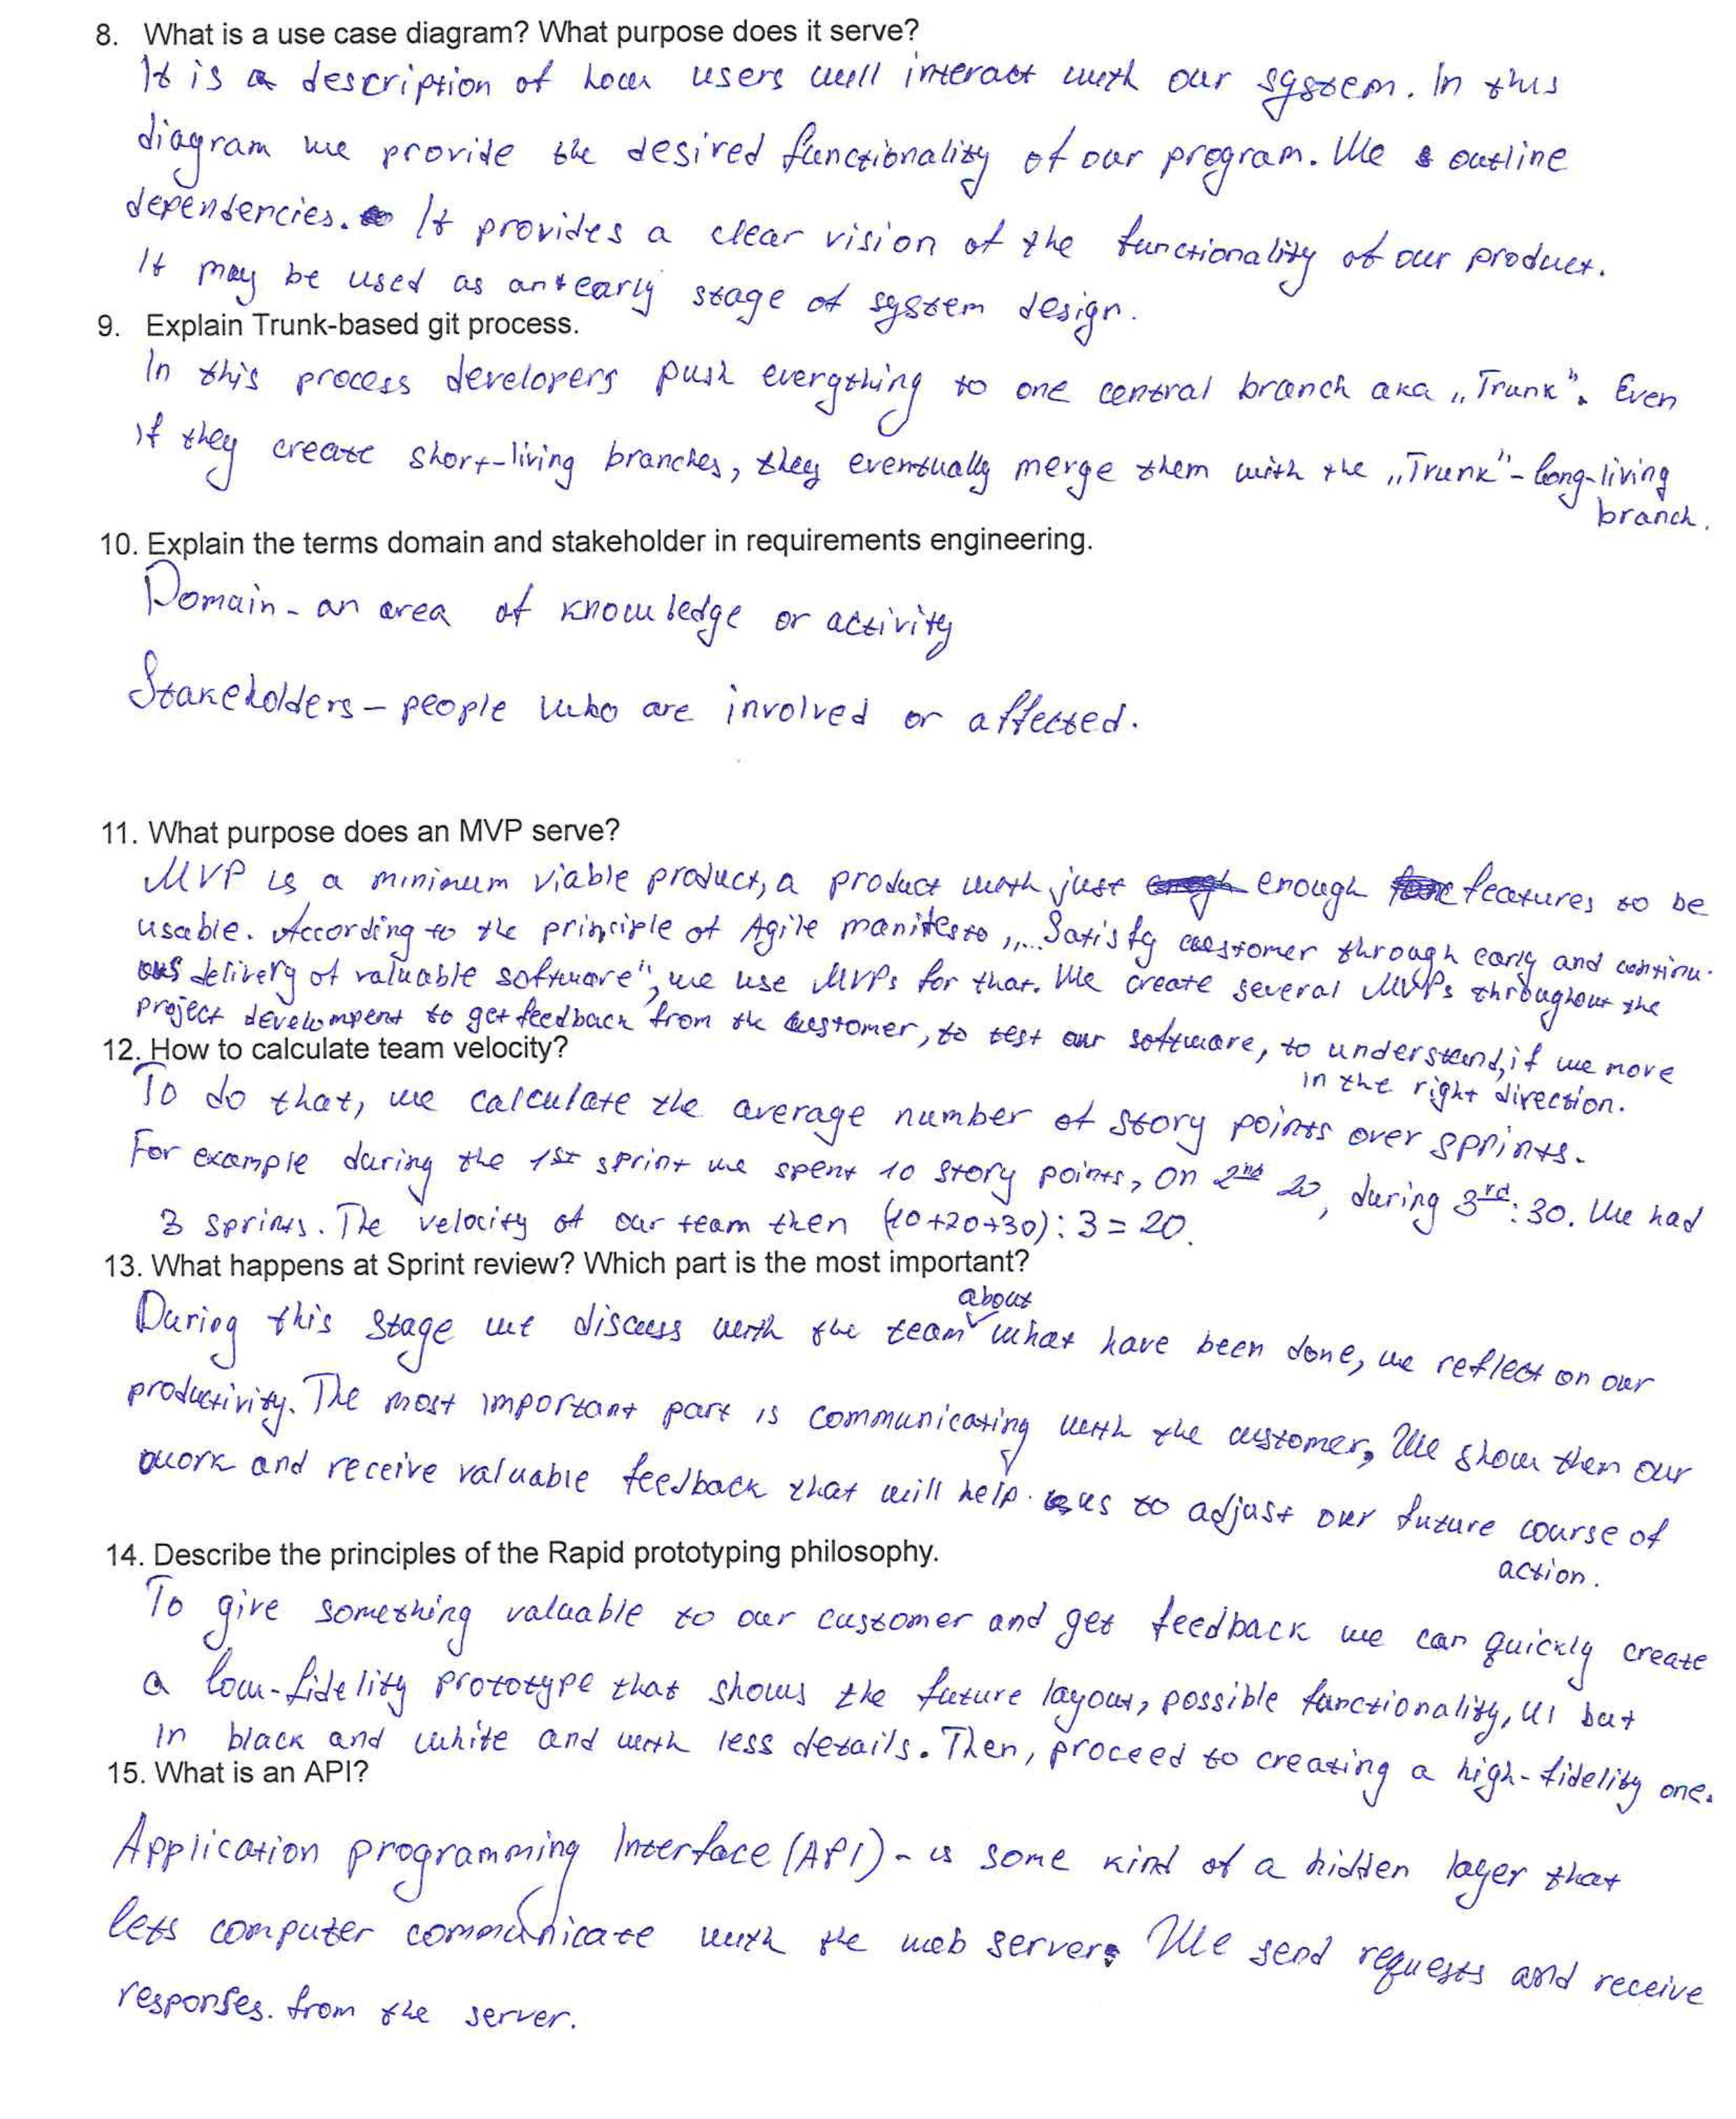 8. What is a use case diagram? What purpose does it serve?
It is a description of how users will interact with our system. In this
diagram we provide the desired functionality of our program. We outline
dependencies. It provides a clear vision of the functionality of our product.
It may be used as an early stage of system design.
9. Explain Trunk-based git process.
In this process developers push everything to one central branch aka „Trunk". Even
if they create short-living branches, they eventually merge them with the „Trunk" - long-living
branch.
10. Explain the terms domain and stakeholder in requirements engineering.
Domain - an area of knowledge or activity
Stakeholders – people who are involved or affected.
11. What purpose does an MVP serve?
MVP is a minimum viable product, a product with just enough features to be
usable. According to the principle of Agile manifesto „...Satisfy customer through early and continu-
ous delivery of valuable software", we use MVPs for that. We create several MVPs throughout the
project develompent to get feedback from the customer, to test our software, to understand, if we move
in the right direction.
12. How to calculate team velocity?
To do that, we calculate the average number of story points over sprints.
For example during the 1st sprint we spent 10 story points, on 2nd 20, during 3rd: 30. We had
3 sprints. The velocity of our team then (10+20+30) : 3 = 20.
13. What happens at Sprint review? Which part is the most important?
During this stage we discuss with the team about what have been done, we reflect on our
productivity. The most important part is communicating with the customer. We show them our
work and receive valuable feedback that will help us to adjust our future course of
action.
14. Describe the principles of the Rapid prototyping philosophy.
To give something valuable to our customer and get feedback we can quickly create
a low-fidelity prototype that shows the future layout, possible functionality, UI but
in black and white and with less details. Then, proceed to creating a high-fidelity one.
15. What is an API?
Application programming Interface (API) - is some kind of a hidden layer that
lets computer communicate with the web server. We send requests and receive
responses. from the server.